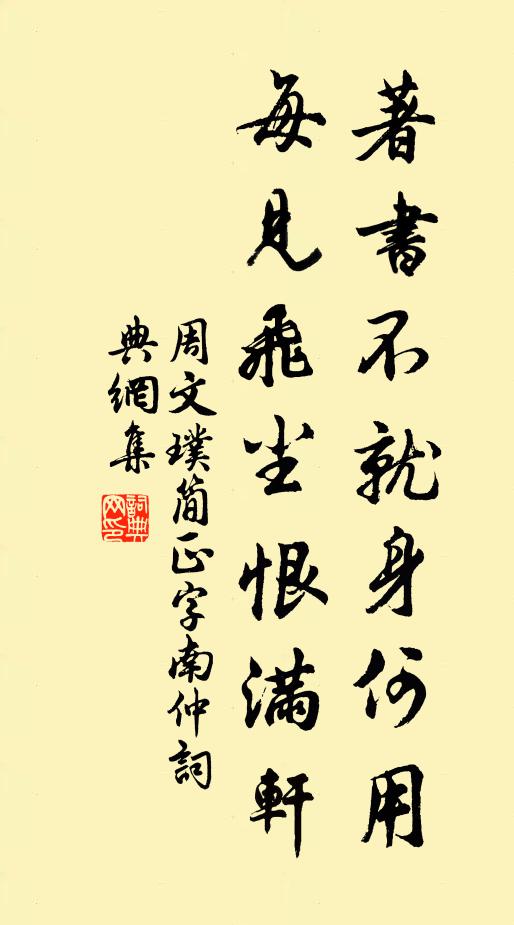 著書不就身何用
每見飛尘恨滿軒
周文璞簡正字南仲詞
典網集
詞典
网印